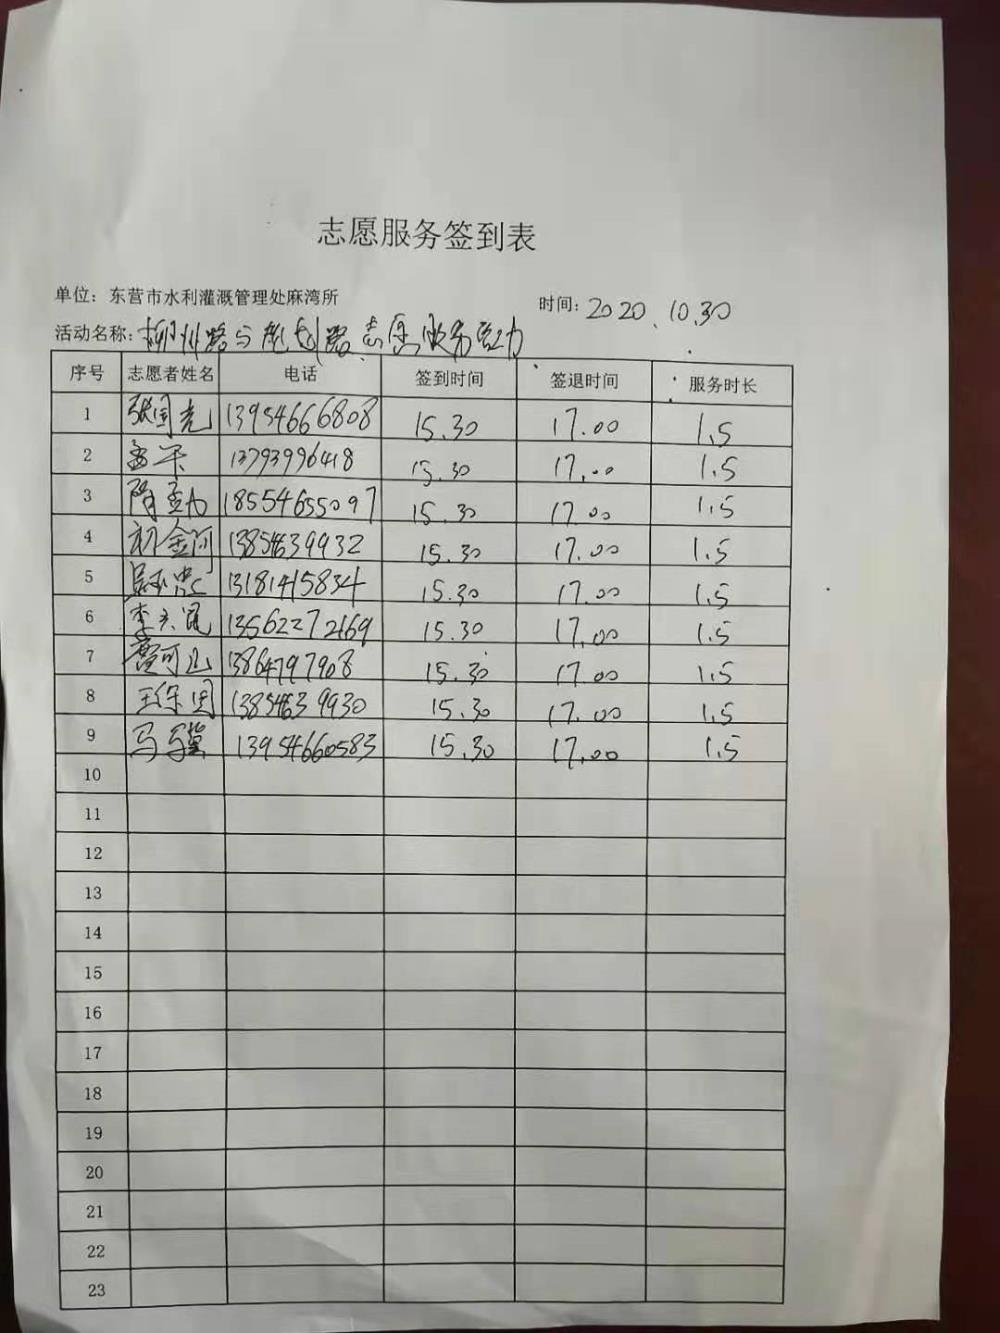 志愿服务签到表
单位：东营市水利灌溉管理处麻湾所
时间：2020.10.30
活动名称：柳州路与 路志愿服务活动
序号 志愿者姓名 电话 签到时间 签退时间 服务时长
1 张国亮 13954666808 15.30 17.00 1.5
2 13793996418 15.30 17.00 1.5
3 18554655097 15.30 17.00 1.5
4 初金河 13854639932 15.30 17.00 1.5
5 13181415834 15.30 17.00 1.5
6 13562272169 15.30 17.00 1.5
7 13864797908 15.30 17.00 1.5
8 王保国 13854639930 15.30 17.00 1.5
9 马 13954660583 15.30 17.00 1.5
10
11
12
13
14
15
16
17
18
19
20
21
22
23